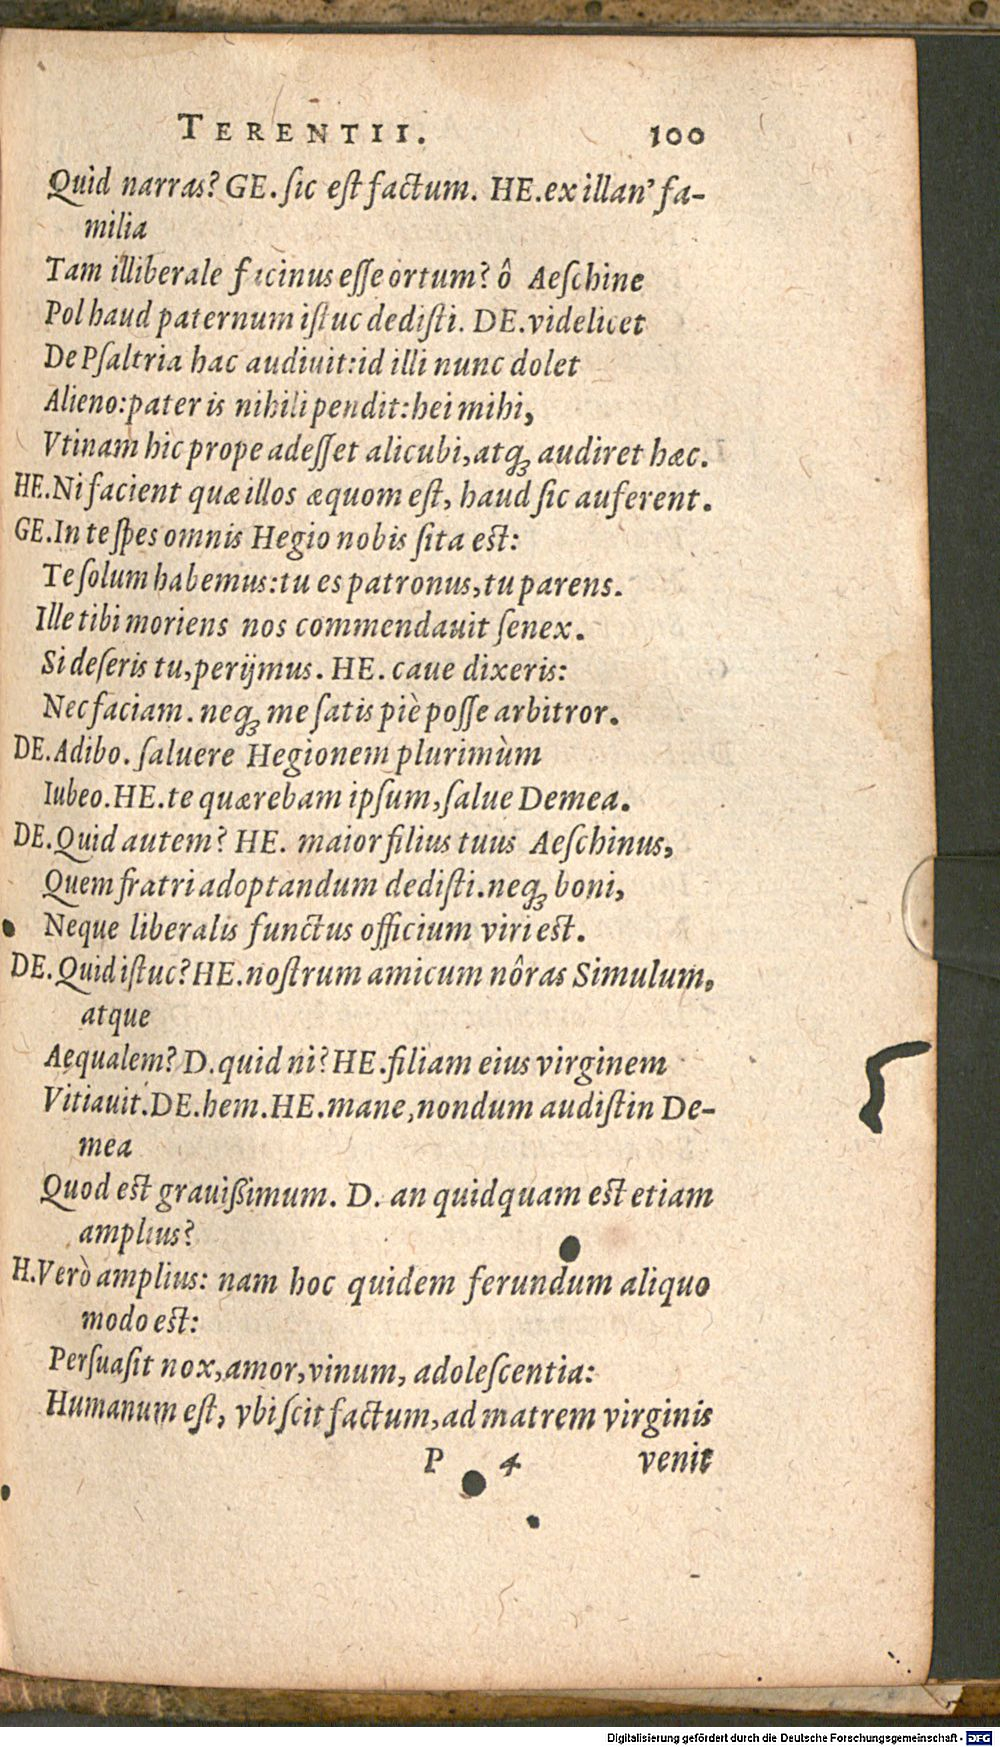 TERENTII. 100
Quid narras? GE. ſic eſt factum. HE. ex illan' fa-
milia
Tam illiberale facinus eſſe ortum? ô Aeſchine
Pol haud paternum iſtuc dediſti. DE. videlicet
De Pſaltria hac audiuit: id illi nunc dolet
Alieno: pater is nihili pendit: hei mihi,
Vtinam hic prope adeſſet alicubi, atq; audiret hæc.
HE. Ni facient quæ illos æquom eſt, haud ſic auferent.
GE. In te ſpes omnis Hegio nobis ſita eſt:
Te ſolum habemus: tu es patronus, tu parens.
Ille tibi moriens nos commendauit ſenex.
Si deſeris tu, perijmus. HE. caue dixeris:
Nec faciam. neq; me ſatis piè poſſe arbitror.
DE. Adibo. ſaluere Hegionem plurimùm
Iubeo. HE. te quærebam ipſum, ſalue Demea.
DE. Quid autem? HE. maior filius tuus Aeſchinus,
Quem fratri adoptandum dediſti. neq; boni,
Neque liberalis functus officium viri eſt.
DE. Quid iſtuc? HE. noſtrum amicum nôras Simulum,
atque
Aequalem? D. quid ni? HE. filiam eius virginem
Vitiauit. DE. hem. HE. mane, nondum audiſtin De-
mea
Quod eſt grauißimum. D. an quidquam eſt etiam
amplius?
H. Verò amplius: nam hoc quidem ferundum aliquo
modo eſt:
Perſuaſit nox, amor, vinum, adoleſcentia:
Humanum eſt, vbi ſcit factum, ad matrem virginis
P 4 venit
Digitalisierung gefördert durch die Deutsche Forschungsgemeinschaft - DFG